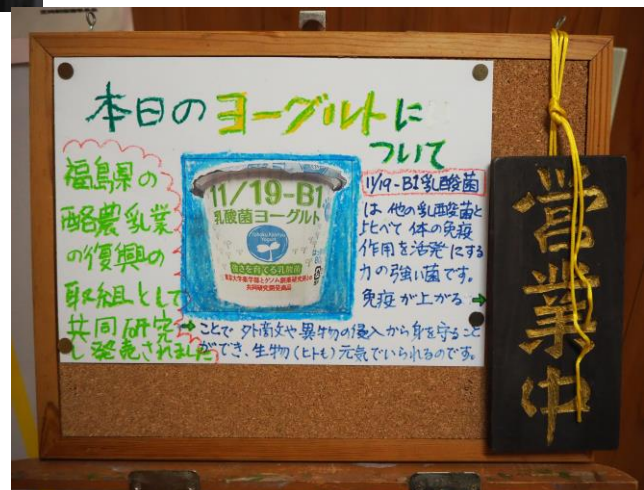 本日のヨーグルトに
ついて
福島県の
酪農乳業
の復興の
取組として
共同研究
し発売されました
11/19-B1
乳酸菌ヨーグルト
強さを育てる乳酸菌
東京大学薬学部とゲノム創薬研究所との
共同研究開発商品
11/19-B1乳酸菌
は他の乳酸菌と
比べて体の免疫
作用を活発にする
力の強い菌です。
免疫が上がる→
→ことで外敵や異物の侵入から身を守ること
ができ、生物(ヒトも)元気でいられるのです。
営業中